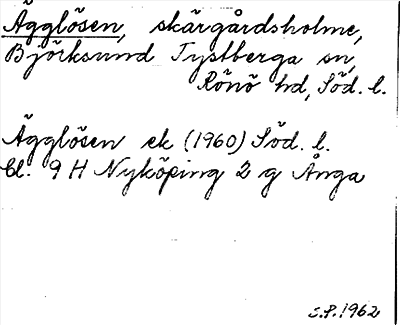 Ägglösen, skärgårdsholme,
Björksund Tystberga sn,
Rönö hd, Söd. l.
Ägglösen ek (1960) Söd. l.
bl. 9 H Nyköping 2 g Ånga
S.P. 1962